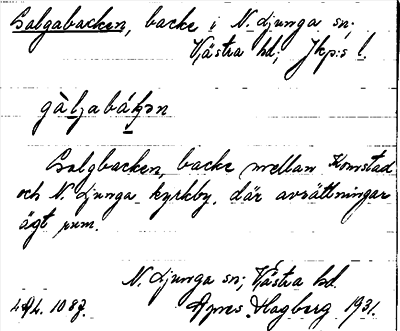 Galgabacken, backe i N. Ljunga sn;
Västra hd, Jkp:s l.
gàl̥jabák̥ən
Galgbacken, backe mellan Komstad
och N. Ljunga kyrkby, där avrättningar
ägt rum.
N. Ljunga sn; Västra hd.
Agnes Hagberg 1931.